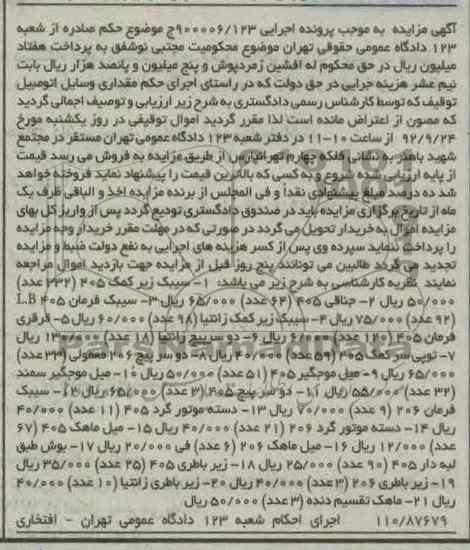 آگهی مزایده به موجب پرونده اجرایی ۹۰۰۰۰۶/۱۲۳ج موضوع حکم صادره از شعبه
۱۲۳ دادگاه عمومی حقوقی تهران موضوع محکومیت مجتبی نوشفق به پرداخت هفتاد
میلیون ریال در حق محکوم له افشین زمردپوش و پنج میلیون و پانصد هزار ریال بابت
نیم عشر هزینه جرایی در حق دولت که در راستای اجرای حکم مقداری وسایل اتومبیل
توقیف که توسط کارشناس رسمی دادگستری به شرح زیر ارزیابی و توصیف اجمالی گردید
که مصون از اعتراض مانده است لذا مقرر گردید اموال توقیفی در روز یکشنبه مورخ
۹۲/۹/۲۴ از ساعت ۱۰-۱۱ در دفتر شعبه ۱۲۳ دادگاه عمومی تهران مستقر در مجتمع
شهید باهنر به نشانی فلکه چهارم تهرانپارس از طریق مزایده به فروش می رسد قیمت
از پایه ارزیابی شده شروع و به کسی که بالاترین قیمت را پیشنهاد نماید فروخته خواهد
شد ده درصد مبلغ پیشنهادی نقدا و فی المجلس از برنده مزایده اخذ و الباقی ظرف یک
ماه از تاریخ برگزاری مزایده باید در صندوق دادگستری تودیع گردد پس از واریز کل بهای
مزایده اموال به خریدار تحویل می گردد در صورتی که در مهلت مقرر خریدار وجه مزایده
را پرداخت ننماید سپرده وی پس از کسر هزینه های اجرایی به نفع دولت ضبط و مزایده
تجدید می گردد طالبین می توانند پنج روز قبل از مزایده جهت بازدید اموال مراجعه
نمایند نظریه کارشناسی به شرح زیر می باشد: ۱- سیبک زیر کمک ۴۰۵ (۳۳۲ عدد)
۵۰/۰۰۰ ریال ۲- جناقی ۴۰۵ (۶۴ عدد) ۶۵/۰۰۰ ریال ۳- سیبک فرمان ۴۰۵ L.B
(۹۲ عدد) ۷۵/۰۰۰ ریال ۴- سیبک زیر کمک زانتیا (۹۸ عدد) ۶۰/۰۰۰ ریال ۵- قرقری
فرمان ۴۰۵ (۱۲۰ عدد) ریال ۶- دو سر پیچ زانتیا (۱۸ عدد) ریال
۷- توپی سر کمک ۴۰۵ (۵۹ عدد) ۴۰/۰۰۰ ریال ۸- دو سر پیچ ۲۰۶ معمولی (۳۳ عدد)
۶۵/۰۰۰ ریال ۹- میل موجگیر ۴۰۵ (۵۱ عدد) ۵۰/۰۰۰ ریال ۱۰- میل موجگیر سمند
(۳۲ عدد) ۵۵/۰۰۰ ریال ۱۱- دو سر پیچ ۴۰۵ (۳ عدد) ۶۵/۰۰۰ ریال ۱۲- سیبک
فرمان ۲۰۶ (۹ عدد) ۷۰/۰۰۰ ریال ۱۳- دسته موتور گرد ۴۰۵ (۱۱ عدد) ۴۰/۰۰۰
ریال ۱۴- دسته موتور گرد ۲۰۶ (۲۱ عدد) ۴۰/۰۰۰ ریال ۱۵- میل ماهک ۴۰۵ (۶۷
عدد) ۱۲/۰۰۰ ریال ۱۶- میل ماهک ۲۰۶ (۶ عدد) فی ۲۰/۰۰۰ ریال ۱۷- بوش طبق
لبه دار ۴۰۵ (۹۰ عدد) ۲۵/۰۰۰ ریال ۱۸- زیر باطری ۴۰۵ (۲۵ عدد) ۳۵/۰۰۰ ریال
۱۹- زیر باطری ۲۰۶ (۳ عدد) ۴۰/۰۰۰ ریال ۲۰- زیر باطری زانتیا (۱۰ عدد) ۴۰/۰۰۰
ریال ۲۱- ماهک تقسیم دنده (۳ عدد) ۵۰/۰۰۰ ریال
۱۱۰/۸۷۶۷۹ اجرای احکام شعبه ۱۲۳ دادگاه عمومی تهران - افتخاری